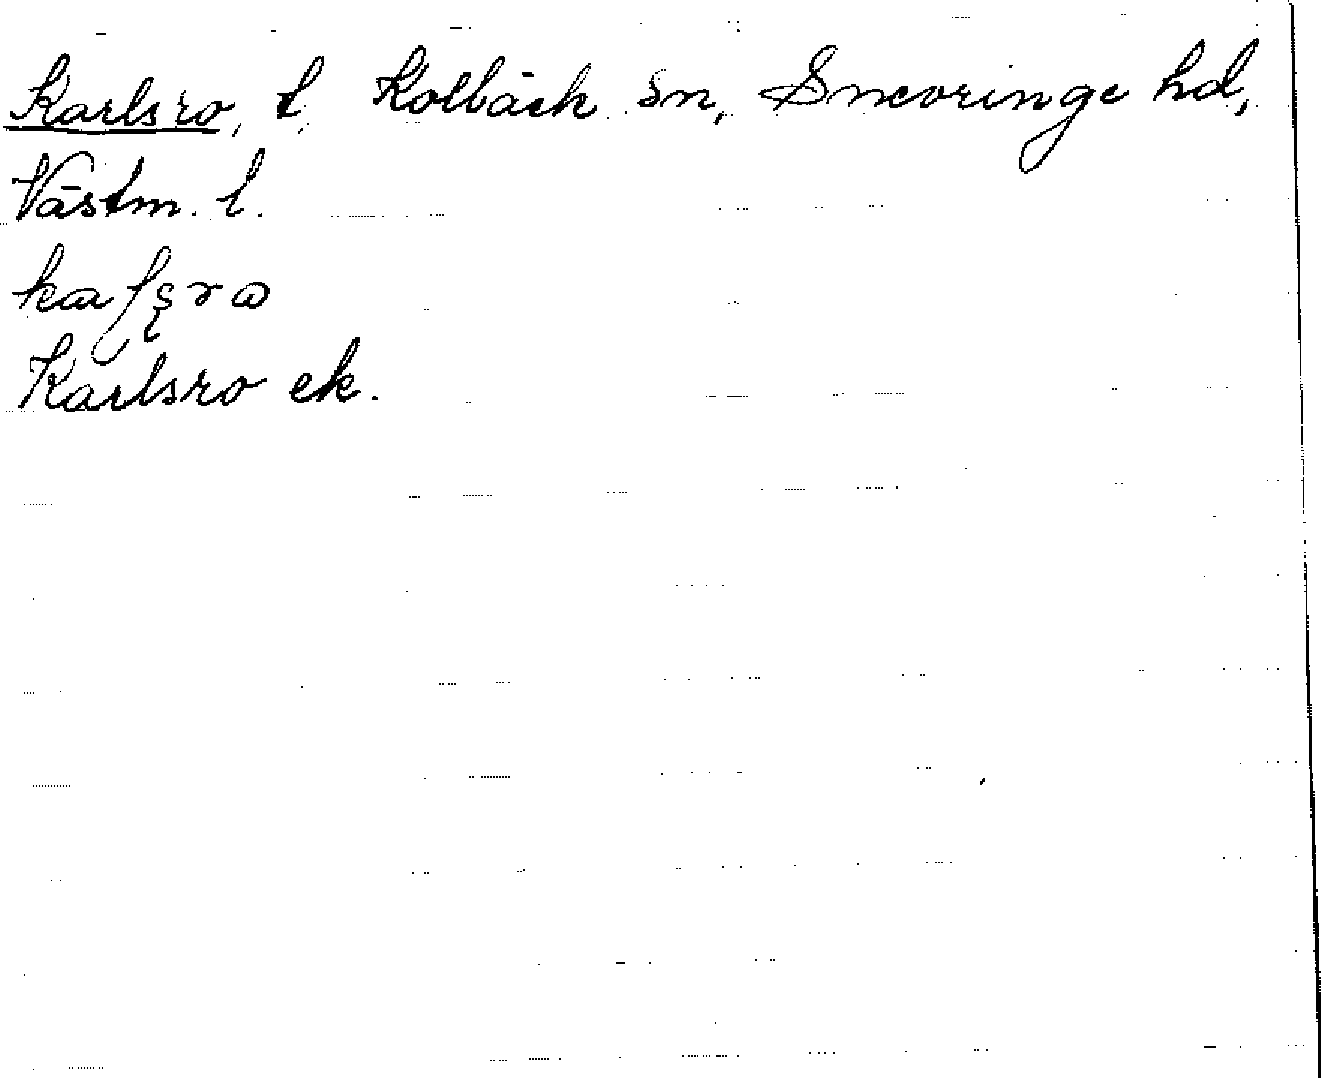 Karlsro, t. Kolbäck sn, Snevringe hd,
Västm. l.
Karlsro ek.